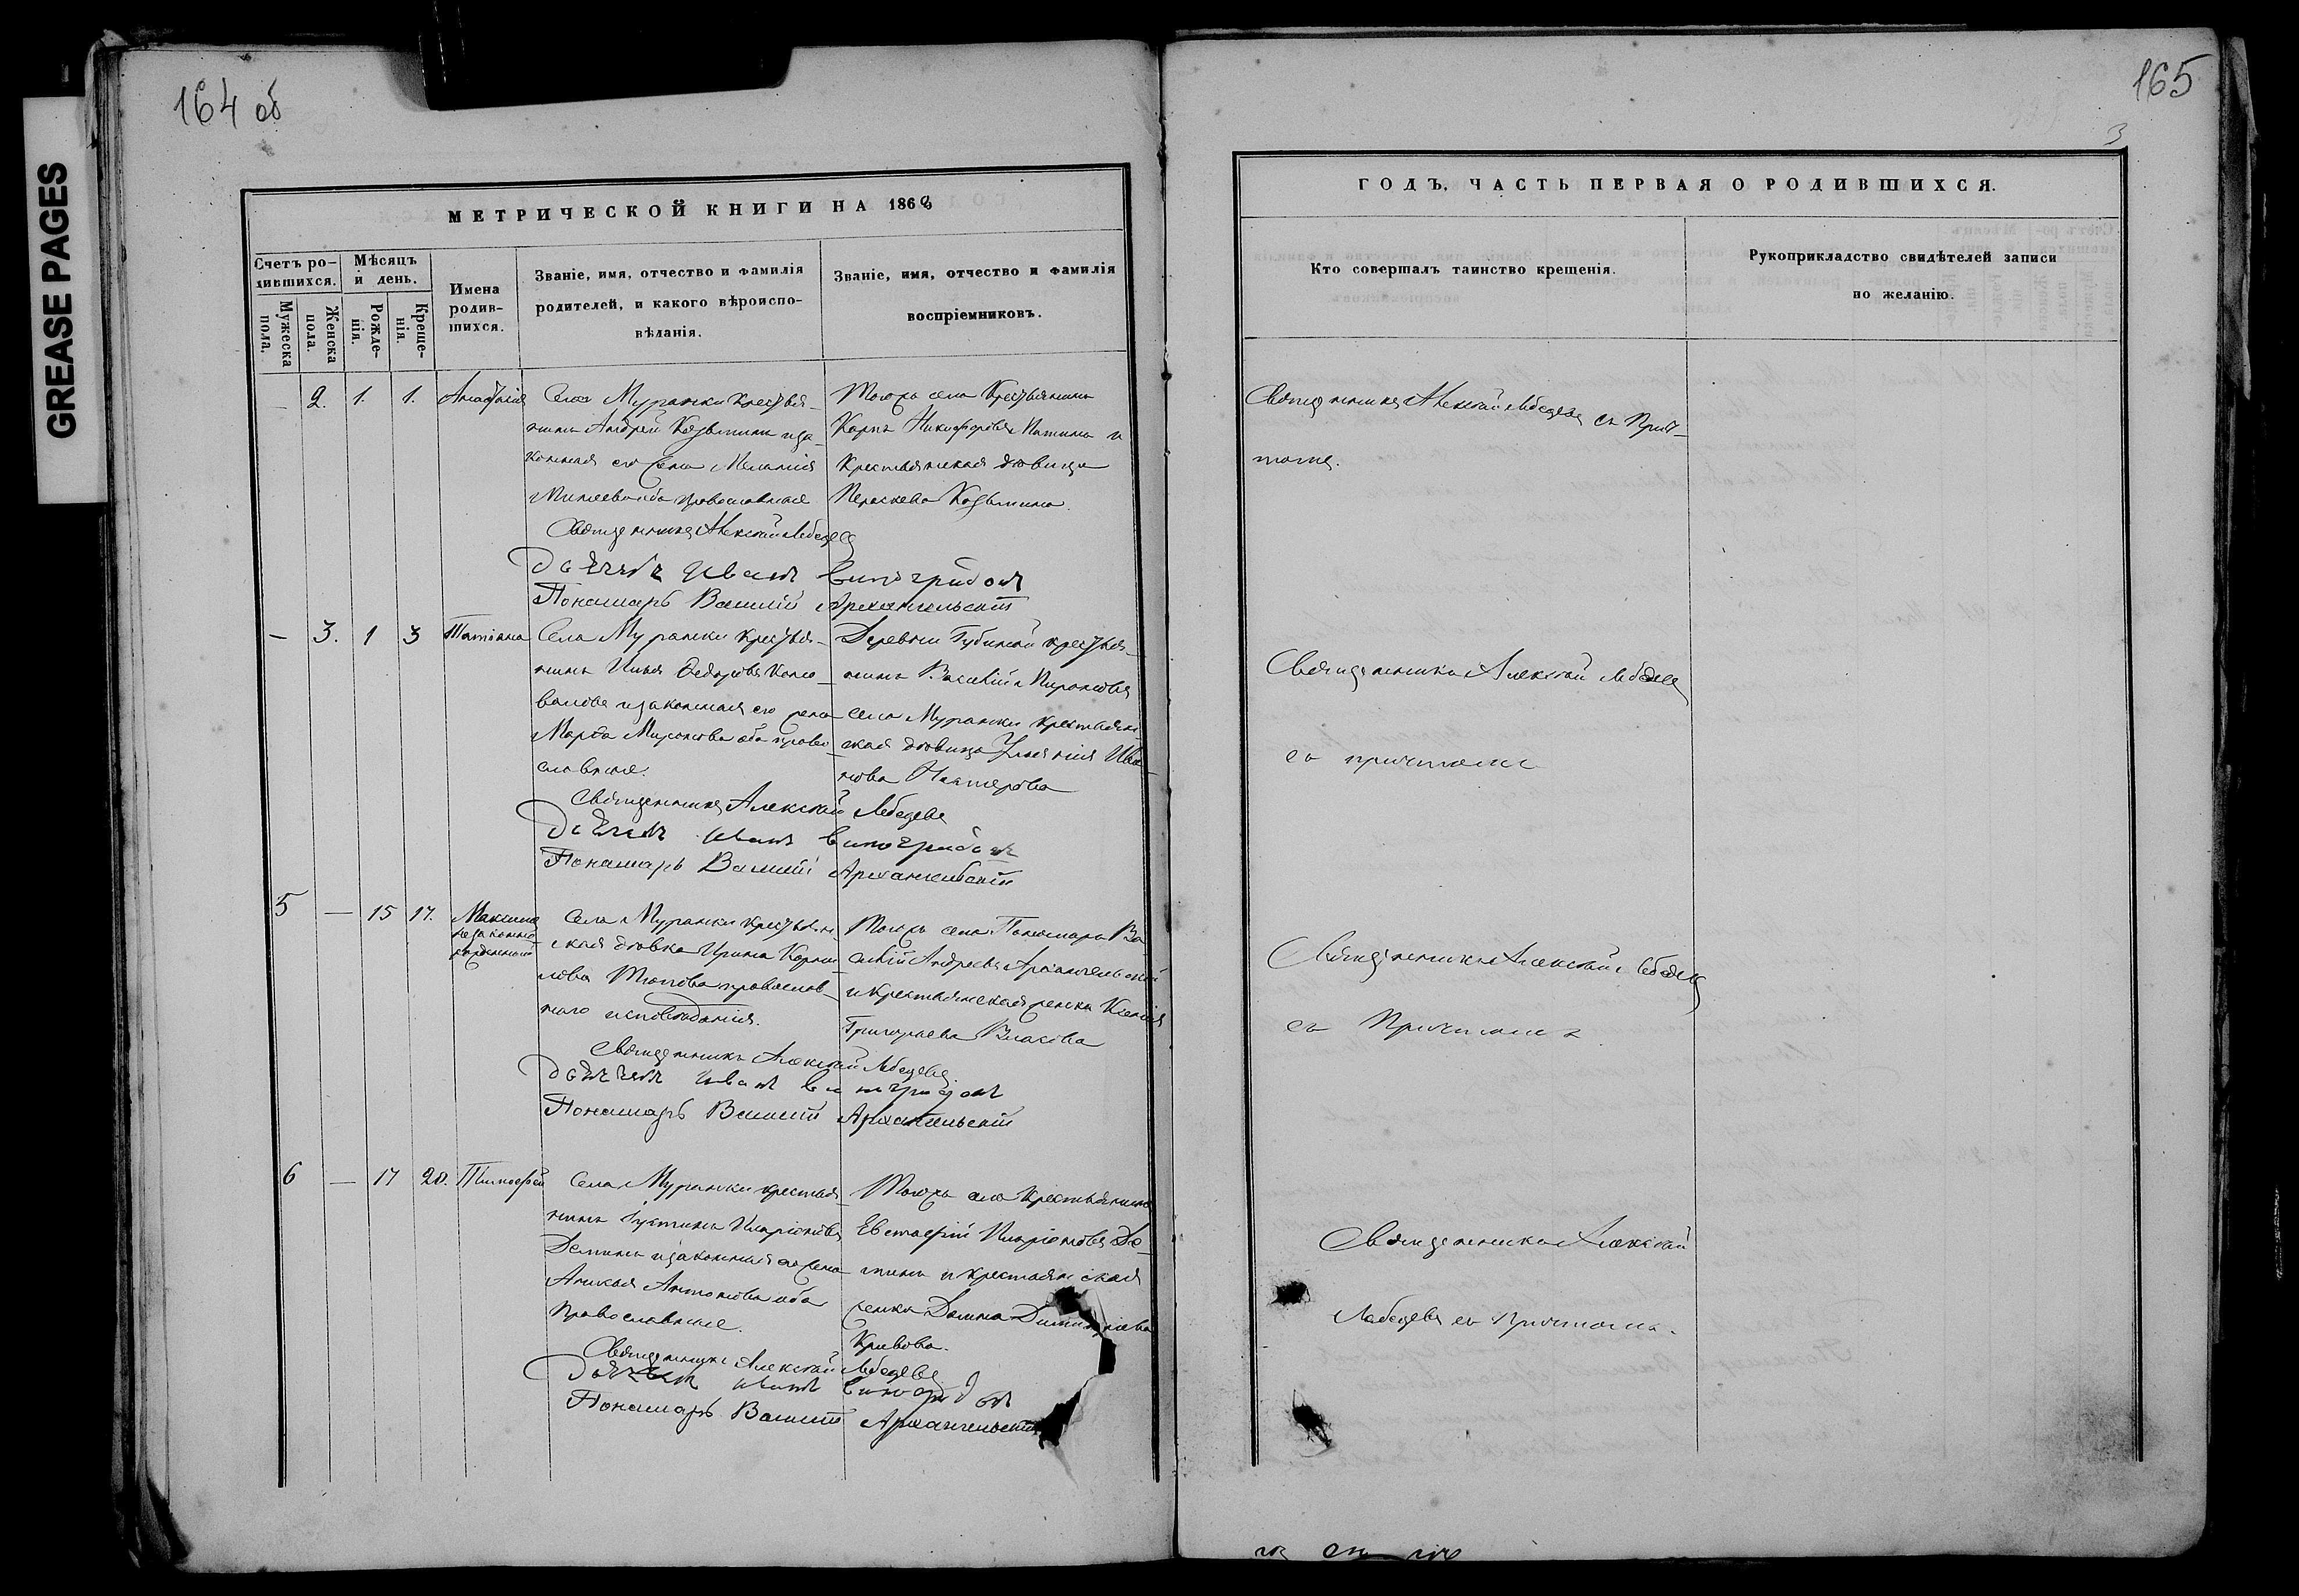 GREASE PAGES
164 об
МЕТРИЧЕСКОЙ КНИГИ НА 1868
Счетъ ро-
дившихся.
Мѣсяцъ
и день.
Мужеска
пола.
Женска
пола.
Рожде-
нія.
Креще-
нія.
Имена
родив-
шихся.
Званіе, имя, отчество и фамилія
родителей, и какого вѣроиспо-
вѣданія.
Званіе, имя, отчество и фамилія
воспріемниковъ.
— 2. 1. 1.
Села Муранки крестья-
нинъ Андрей Козьминъ и за-
конная его жена Меланія
оба православные
Тогожъ села крестьянинъ
Карпъ Никифоровъ и
крестьянская дѣвица
Параскева Козьмина.
Священникъ Алексій Лебедевъ
Дьячекъ Иванъ Виноградовъ
Пономарь Василій Архангельскій
— 3. 1 3 Татіана
Села Муранки крестья-
нинъ Илья Ѳедоровъ Коно-
валовъ и законная его жена
Марѳа Миронова оба право-
славные.
Деревни Губиной крестья-
нинъ Василій Мироновъ
села Муранки крестьян-
ская дѣвица Ива-
нова Нестерова
Священникъ Алексій Лебедевъ
Дьячекъ Иванъ Виноградовъ
Пономарь Василій Архангельскій
5 — 15 17. Максимъ
незаконно-
рожденный
Села Муранки крестьян-
ская дѣвка Ирина Корни-
лова православ-
наго исповѣданія.
Тогожъ села Пономарь Ва-
силій Андреевъ Архангельскій
и крестьянская женка Ксенія
Григорьева Власова
Священникъ Алексій Лебедевъ
Дьячекъ Иванъ Виноградовъ
Пономарь Василій Архангельскій
6 — 17 20. Тимофей
Села Муранки крестья
нинъ Густинъ Иларіоновъ
Деминъ и законная его жена
Антонова оба
православные.
Тогожъ села крестьянинъ
Евстафій Иларіоновъ Де-
минъ и крестьянская
женка Домна Димитріева
Кривова.
Священникъ Алексій Лебедевъ
Дьячекъ Иванъ Виноградовъ
Пономарь Василій Архангельскій
165
3
ГОДЪ, ЧАСТЬ ПЕРВАЯ О РОДИВШИХСЯ.
Кто совершалъ таинство крещенія.
Рукоприкладство свидѣтелей записи
по желанію.
Священникъ Алексій Лебедевъ съ прич-
томъ.
Священникъ Алексій Лебедевъ
съ причтомъ
Священникъ Алексій Лебедевъ
съ Причтомъ
Священникъ Алексій
Лебедевъ съ Причтомъ.